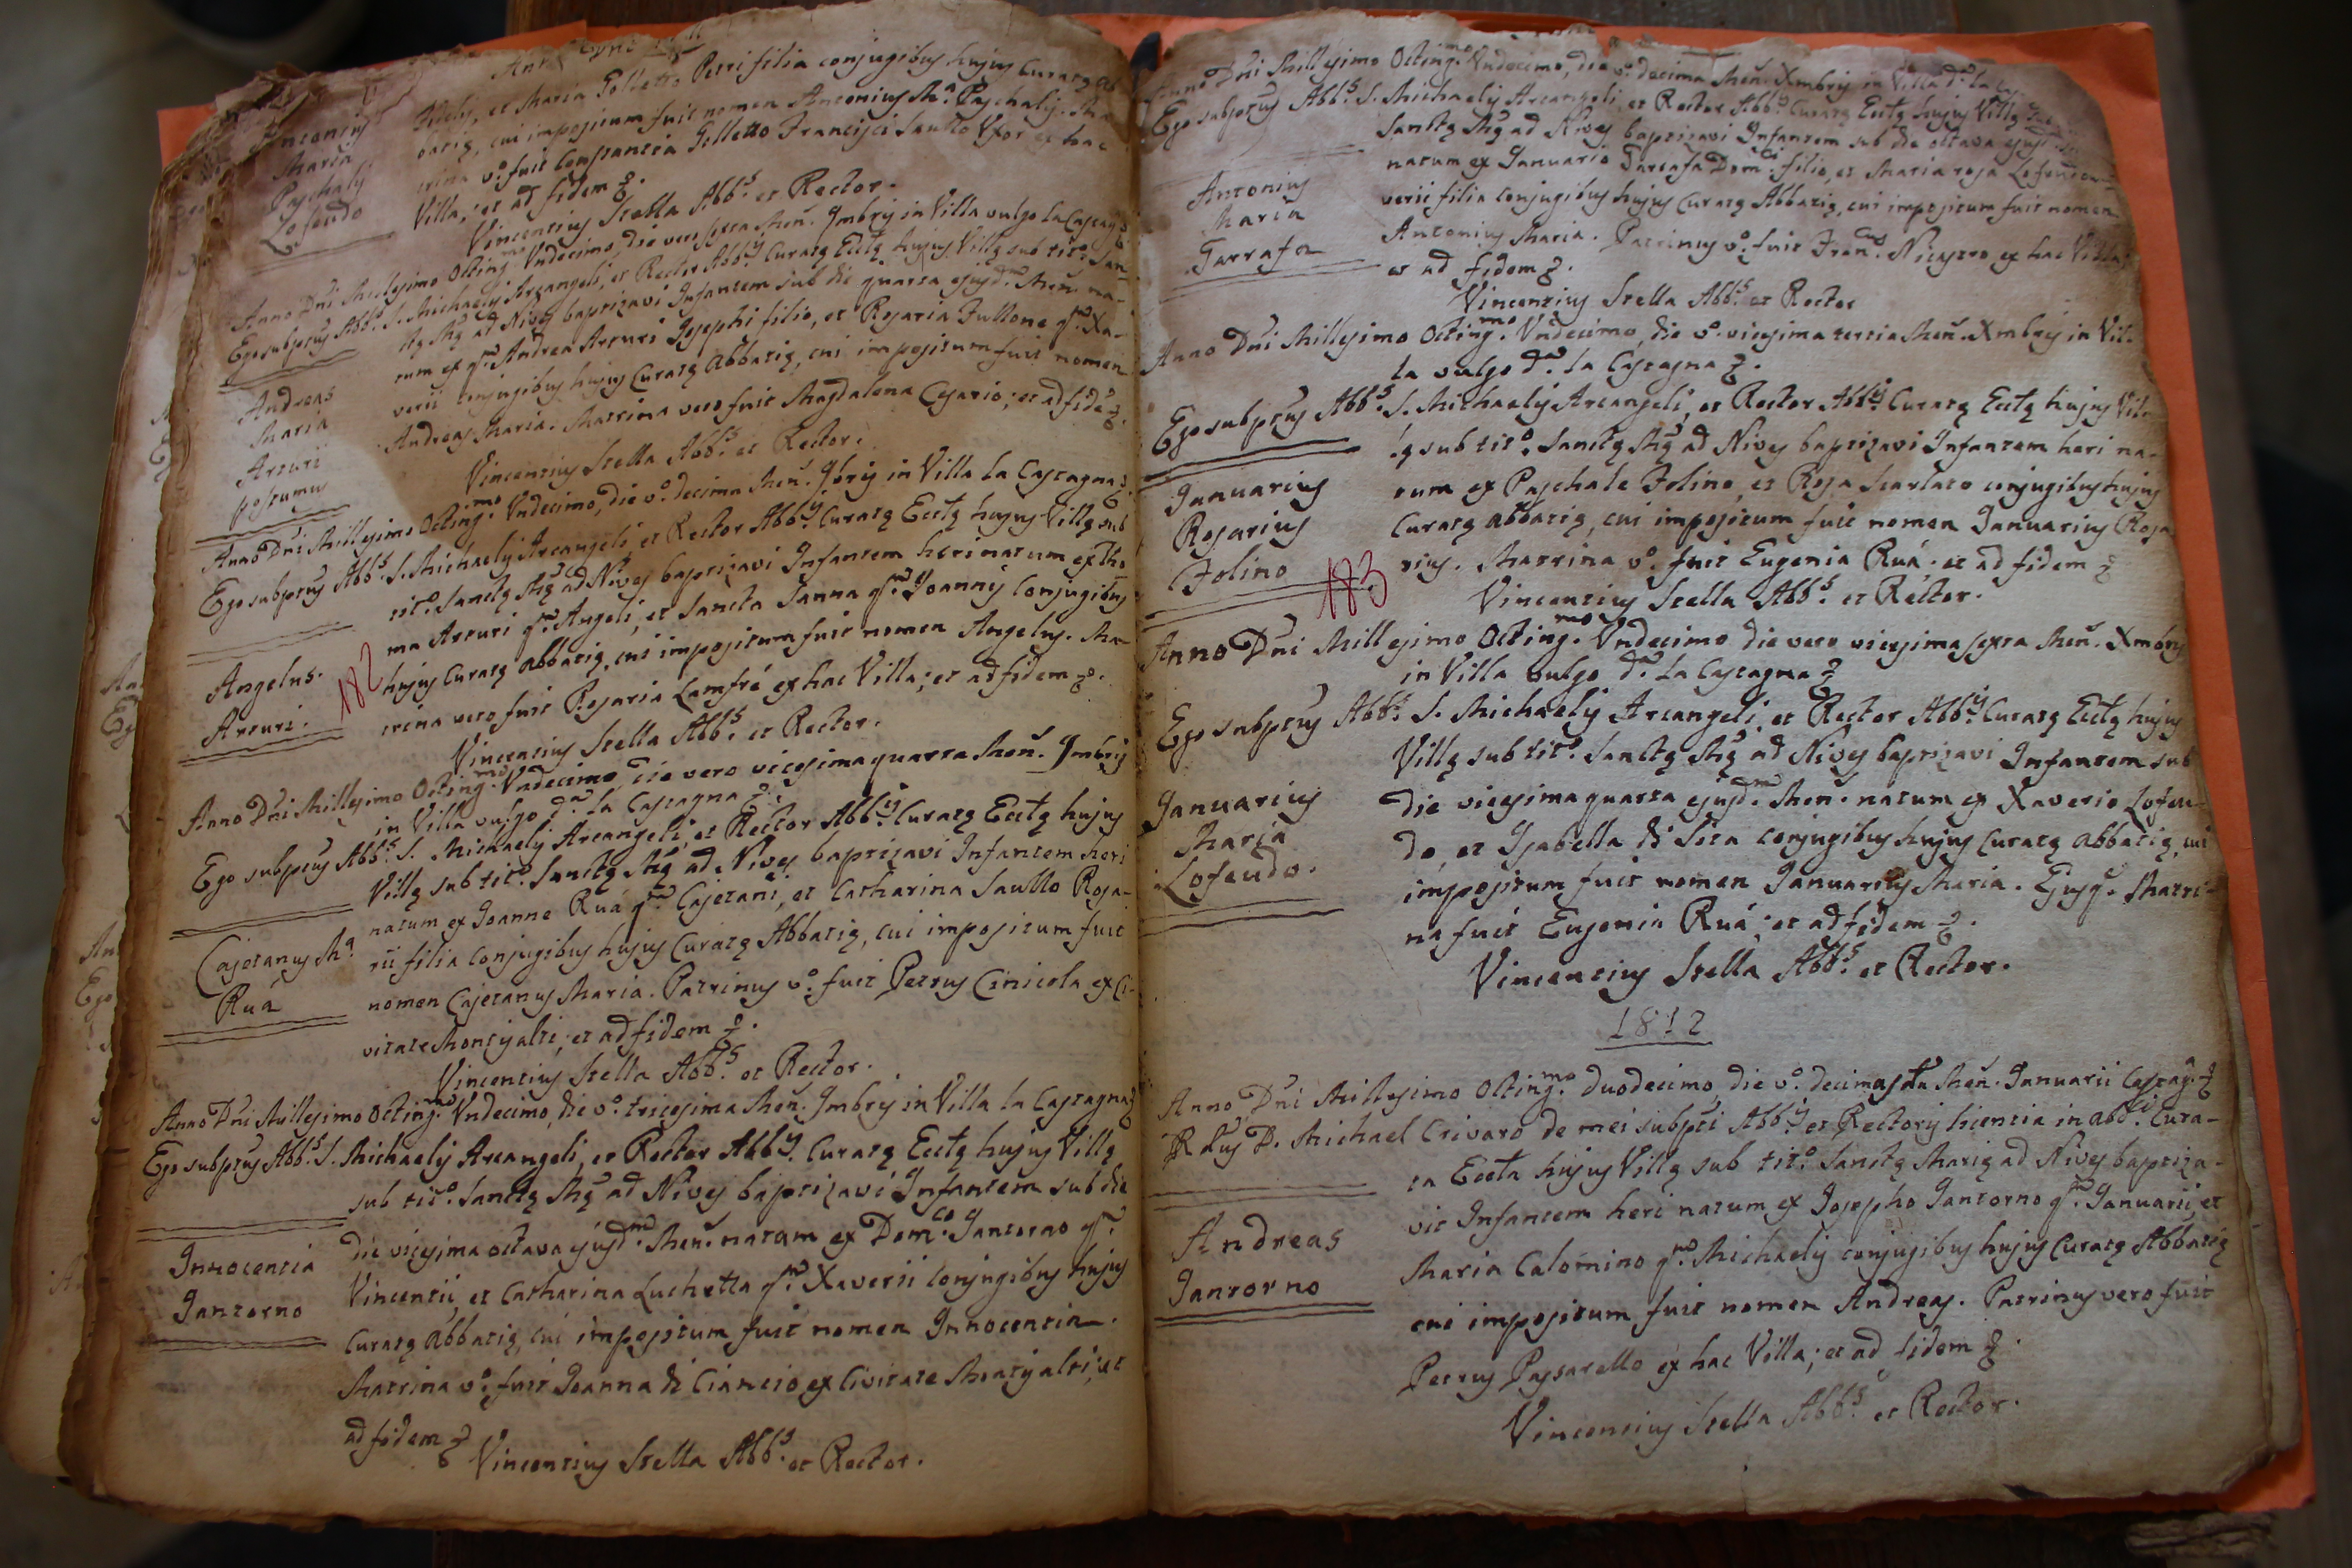 Antonius
Maria
Paschalis
Lofeudo
et Maria Folletto Petri filia conjugibus hujus Curatę
cui impositum fuit nomen Antonius Ma. Paschalis. Ma
vo. fuit Constantia Folletto Francisci Saullo Uxor ex hac
Villa, et ad fidem &.
Vincentius Stella Abb.s et Rector.
Anno Dni Millesimo Octing.mo Undecimo, die vero sexta Men. 9mbris in Villa vulgo la Castag.a &.
Ego subptus Abb.s S. Michaelis Arcangeli, et Rector Abb.is Curatę Ecclę hujus Villę sub tit.o San-
ctę Mę ad Nives baptizavi Infantem sub die quarta ejusd.m Men. na-
tum ex q.m Andrea Arturi Josephi filio, et Rosaria Fullone q.m Xa-
verii conjugibus hujus Curatę Abbatię, cui impositum fuit nomen
Andreas Maria. Matrina vero fuit Magdalena Cesario; et ad fidē &.
Vincentius Stella Abb.s et Rector.
Andreas
Maria
Arturi
postumus
Anno Dni Millesimo Octing.mo Undecimo, die vo. decima Men. 9bris in Villa la Castagna &
Ego subptus Abb.s S. Michaelis Arcangeli, et Rector Abb.is Curatę Ecclę hujus Villę sub
tit.o Sanctę Mę ad Nives baptizavi Infantem heri natum ex Tho-
ma Arturi q.m Angeli, et Sancta Sanna q.m Joannis Conjugibus
hujus Curatę Abbatię, cui impositum fuit nomen Angelus. Ma-
trina vero fuit Rosaria Lamfré ex hac Villa; et ad fidem &.
Vincentius Stella Abb.s et Rector.
Angelus.
Arturi.
182
Anno Dni Millesimo Octing.mo Undecimo die vero vicesima quarta Men. 9mbris
in Villa vulgo d.a la Castagna &.
Ego subptus Abb.s S. Michaelis Arcangeli, et Rector Abb.is Curatę Ecclę hujus
Villę sub tit.o Sanctę Mę ad Nives baptizavi Infantem heri
natum ex Joanne Ruá q.m Cajetani, et Catharina Saullo Rosa-
rii filia conjugibus hujus Curatę Abbatię, cui impositum fuit
nomen Cajetanus Maria. Patrinus vo. fuit Petrus Cinicola ex Ci-
vitate Montisalti; et ad fidem &.
Vincentius Stella Abb.s et Rector.
Cajetanus Ma.
Ruá
Anno Dni Millesimo Octing.mo Undecimo, die vo. tricesima Men. 9mbris in Villa la Castagna &
Ego subptus Abb.s S. Michaelis Arcangeli, et Rector Abb.is Curatę Ecclę hujus Villę
sub tit.o Sanctę Mę ad Nives baptizavi Infantem sub die
die vicesima octava ejusd.m Men. natam ex Dom.co Jantorno q.m
Vincentii, et Catharina Luchetta q.m Xaverii Conjugibus hujus
Curatę Abbatię, cui impositum fuit nomen Innocentia.
Matrina vo. fuit Joanna di Ciancio ex Civitate Montisalti; et
ad fidem & Vincentius Stella Abb.s et Rector.
Innocentia
Jantorno
Anno Dni Millesimo Octing.mo Undecimo, die vo. decima Men. Xmbris in Villa d.a la
Ego subptus Abb.s S. Michaelis Arcangeli, et Rector Abb.is Curatę Ecclę hujus Villę
Sanctę Mę ad Nives baptizavi Infantem sub die octava
natum ex Januario Tarrafa Dom.ci filio, et Maria rosa Lofeudo
verii filia Conjugibus hujus Curatę Abbatię, cui impositum fuit nomen
Antonius Maria. Patrinus vo. fuit Fran.cus Nicastro ex hac Villa;
et ad fidem &.
Vincentius Stella Abb.s et Rector
Antonius
Maria
Tarrafa
Anno Dni Millesimo Octing.mo Undecimo, die vo. vicesima tertia Men. Xmbris in Vil-
la vulgo d.a la Castagna &.
Ego subptus Abb.s S. Michaelis Arcangeli, et Rector Abb.is Curatę Ecclę hujus Vil-
lę sub tit.o Sanctę Mę ad Nives baptizavi Infantem heri na-
tum ex Paschale Folino, et Rosa Scarlato conjugibus hujus
Curatę Abbatię, cui impositum fuit nomen Januarius Rosa-
rius. Matrina vo. fuit Eugenia Ruá. et ad fidem &
Vincentius Stella Abb.s et Rector.
Januarius
Rosarius
Folino
183
Anno Dni Millesimo Octing.mo Undecimo die vero vicesima sexta Men. Xmbris
in Villa vulgo d.a la Castagna &
Ego subptus Abb.s S. Michaelis Arcangeli, et Rector Abb.is Curatę Ecclę hujus
Villę sub tit.o Sanctę Mę ad Nives baptizavi Infantem sub
die vicesima quarta ejusd.m Men. natum ex Xaverio Lofeu-
do, et Isabella di Sita conjugibus hujus Curatę Abbatię, cui
impositum fuit nomen Januarius Maria. Ejusq. Matri-
na fuit Eugenia Ruá; et ad fidem &.
Vincentius Stella Abb.s et Rector.
Januarius
Maria
Lofeudo.
1812
Anno Dni Millesimo Octing.mo duodecimo, die vo. Men. Januarii Castag.a &
R.dus D. Michael Crivaro de mei subpti Abb.is et Rectoris licentia in abb.li Cura-
ta Eccla hujus Villę sub tit.o Sanctę Marię ad Nives baptiza-
vit Infantem heri natum ex Josepho Jantorno q.m Januarii, et
Maria Calomino q.m Michaelis conjugibus hujus Curatę Abbatię
cui impositum fuit nomen Andreas. Patrinus vero fuit
Petrus Passarello ex hac Villa; et ad fidem &.
Vincentius Stella Abb.s et Rector.
Andreas
Jantorno